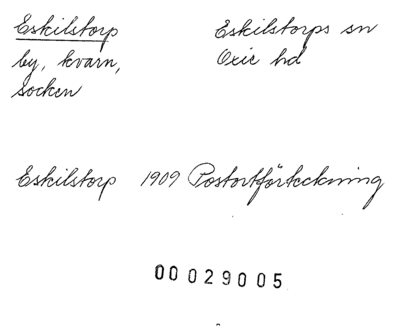 Eskilstorp
by, kvarn,
socken
Eskilstorps sn
Oxie hd
Eskilstorp 1909 Postortförteckning
00029005